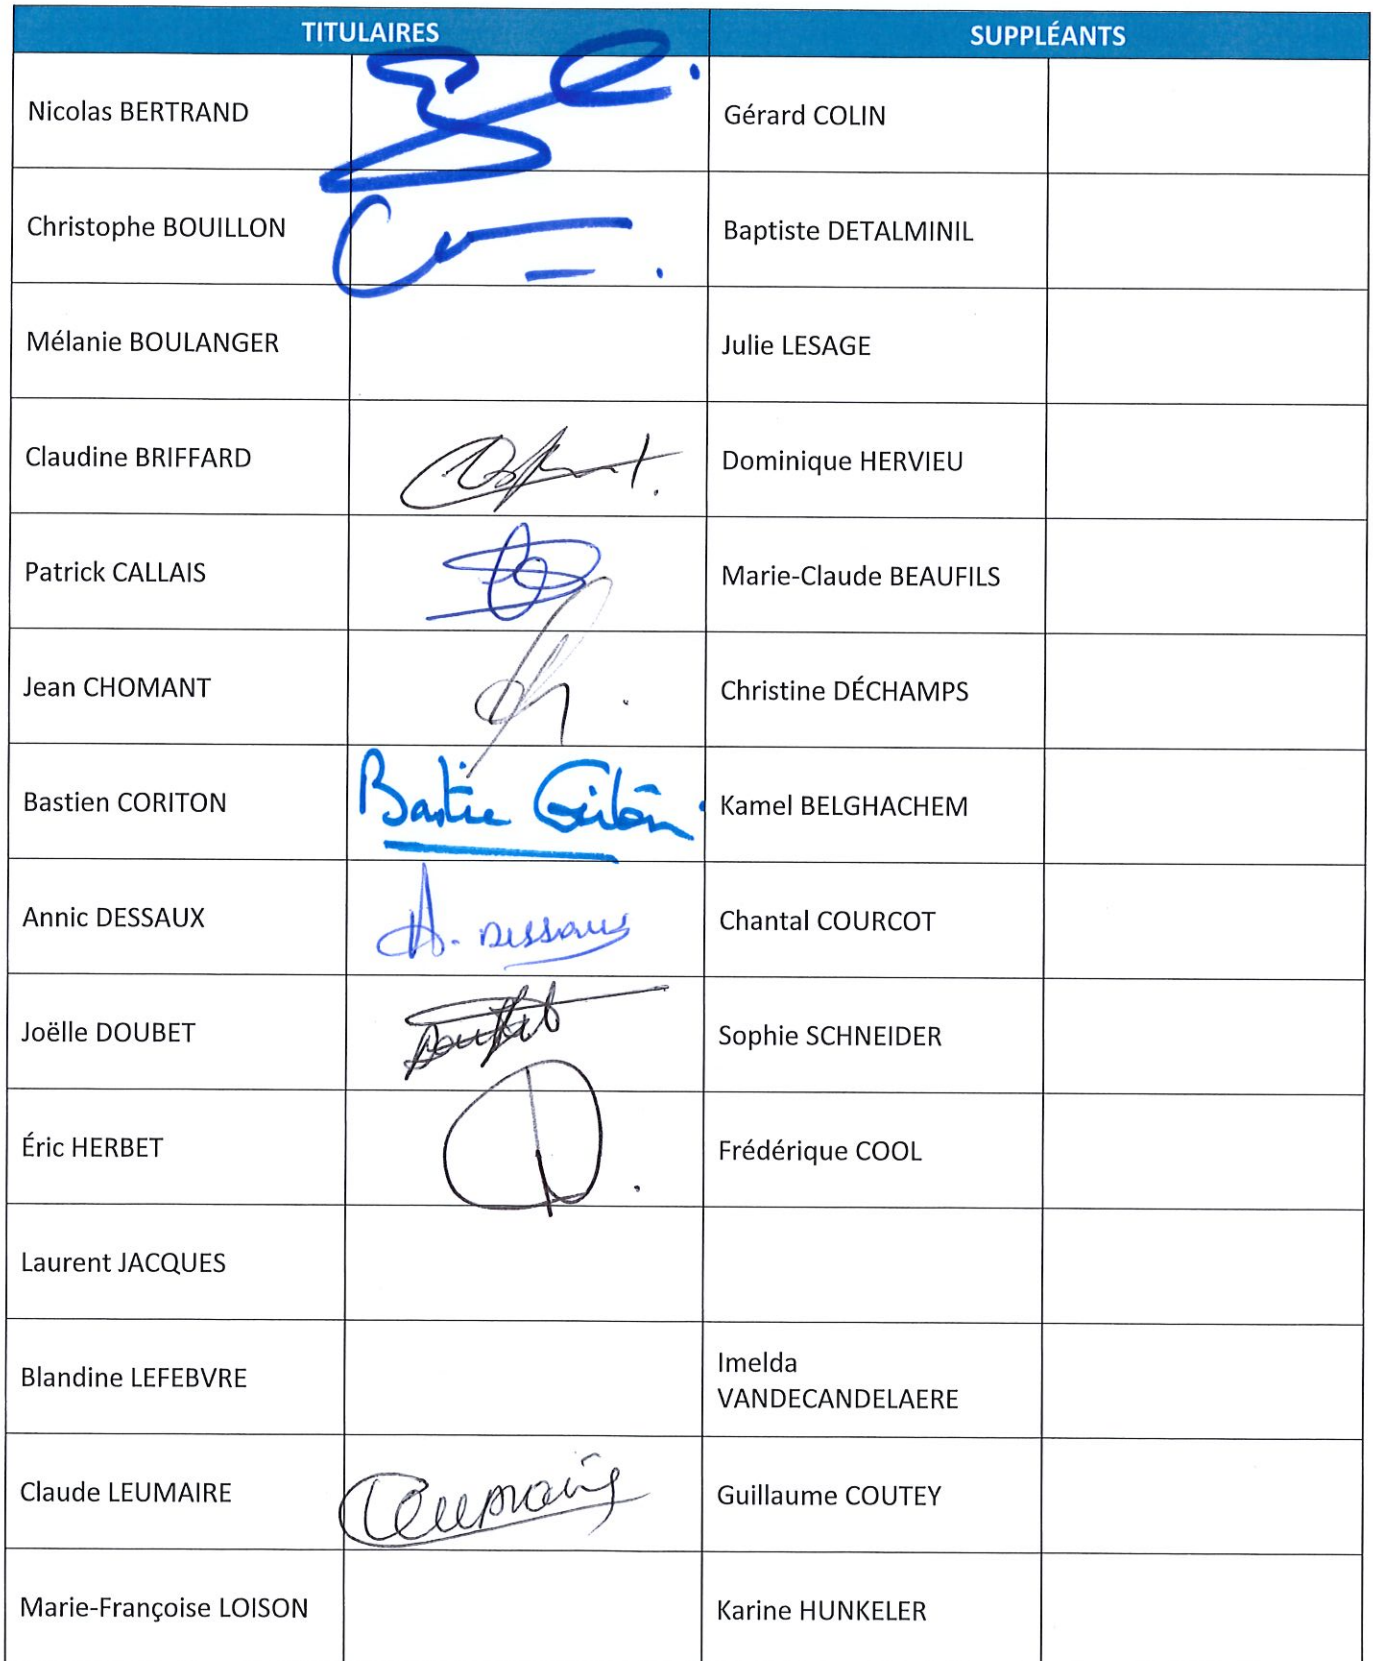 TITULAIRES SUPPLÉANTS
Nicolas BERTRAND Gérard COLIN
Christophe BOUILLON Baptiste DETALMINIL
Mélanie BOULANGER Julie LESAGE
Claudine BRIFFARD Dominique HERVIEU
Patrick CALLAIS Marie-Claude BEAUFILS
Jean CHOMANT Christine DÉCHAMPS
Bastien CORITON Kamel BELGHACHEM
Annic DESSAUX A. Dessaux Chantal COURCOT
Joëlle DOUBET Sophie SCHNEIDER
Éric HERBET Frédérique COOL
Laurent JACQUES
Blandine LEFEBVRE Imelda
VANDECANDELAERE
Claude LEUMAIRE Guillaume COUTEY
Marie-Françoise LOISON Karine HUNKELER